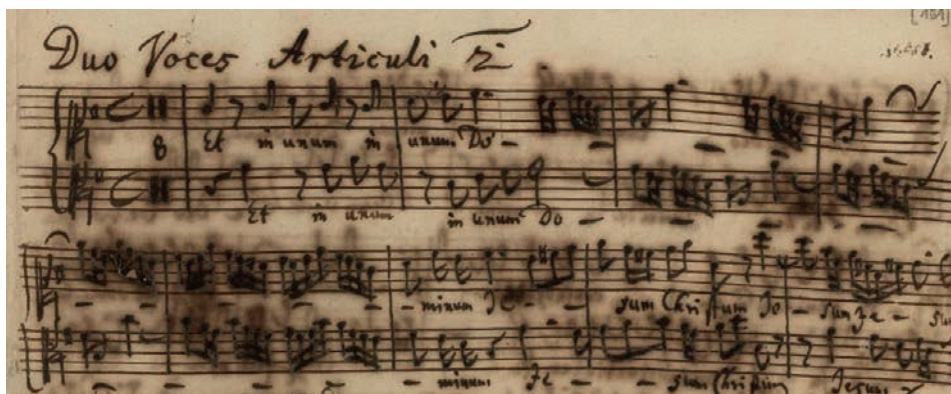 Duo Voces Articuli 2
[151]
8 Et in unum in unum Do -
Et in unum in unum Do -
- minum Je - sum Christum Je - sum Je - sum
- minum Je - sum Christum Jesum